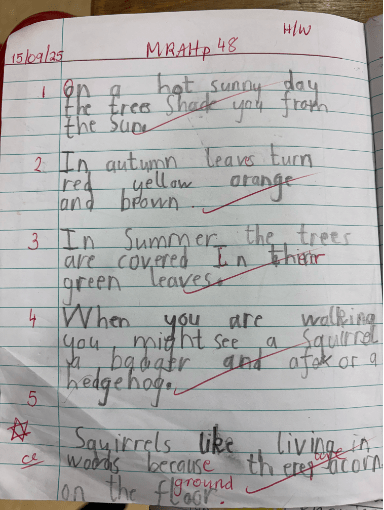 H/W
15/09/25 MRAHp 48
1 On a hot sunny day
the trees Shade you from
the Sun.
2 In autumn leaves turn
red yellow orange
and brown.
3 In Summer the trees
are covered In their
green leaves.
4 When you are walking
you might see a Squirrel
a badger and a fox or a
hedgehog.
5
Squirrels like living in
ce woods because there are acorn
ground
on the floor.